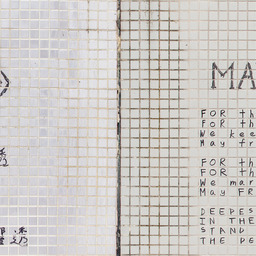 MA
FOR th
FOR th
We kee
May fr
FOR th
FOR th
We mar
May FR
DEEPES
IN THE
STAND
THE PE